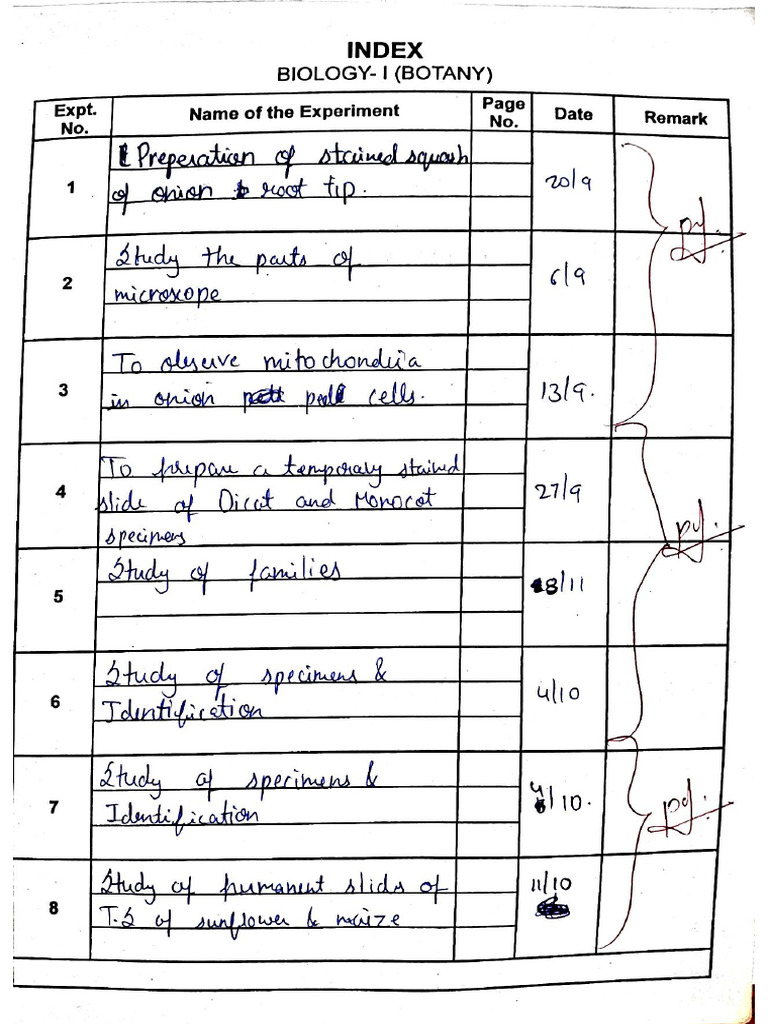 INDEX
BIOLOGY- I (BOTANY)
Expt. No. Name of the Experiment Page No. Date Remark
1 Preperation of stained squash 20/9
of onion root tip.
2 Study the parts of 6/9
microxope
3 To observe mitochondria 13/9.
in onion peel cells.
4 To prepare a temporaly stained 27/9
slide of Dicot and Monocot
specimens
5 Study of families 8/11
6 Study of specimens & 4/10
Identification
7 Study of specimens & 4/10.
Identification
8 Study of purmanent slids of 11/10
T.S of sunflower & maize